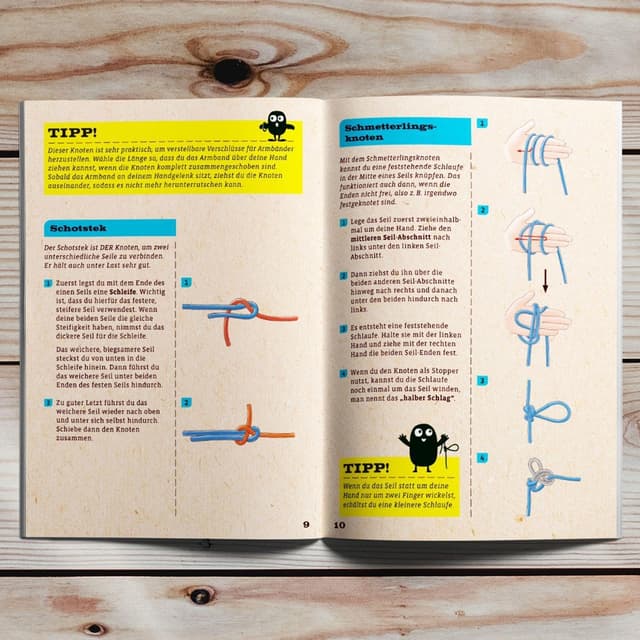 TIPP!
Dieser Knoten ist sehr praktisch, um verstellbare Verschlüsse für Armbänder
herzustellen. Wähle die Länge so, dass du das Armband über deine Hand
ziehen kannst, wenn die Knoten komplett zusammengeschoben sind.
Sobald das Armband an deinem Handgelenk sitzt, ziehst du die Knoten
auseinander, sodass es nicht mehr herunterrutschen kann.
Schotstek
Der Schotstek ist DER Knoten, um zwei
unterschiedliche Seile zu verbinden.
Er hält auch unter Last sehr gut.
1 Zuerst legst du mit dem Ende des
einen Seils eine Schleife. Wichtig
ist, dass du hierfür das festere,
steifere Seil verwendest. Wenn
deine beiden Seile die gleiche
Steifigkeit haben, nimmst du das
dickere Seil für die Schleife.
Das weichere, biegsamere Seil
steckst du von unten in die
Schleife hinein. Dann führst du
das weichere Seil unter beiden
Enden des festen Seils hindurch.
2 Zu guter Letzt führst du das
weichere Seil wieder nach oben
und unter sich selbst hindurch.
Schiebe dann den Knoten
zusammen.
1
2
9
Schmetterlings-
knoten
Mit dem Schmetterlingsknoten
kannst du eine feststehende Schlaufe
in der Mitte eines Seils knüpfen. Das
funktioniert auch dann, wenn die
Enden nicht frei, also z.B. irgendwo
festgeknotet sind.
1 Lege das Seil zuerst zweieinhalb-
mal um deine Hand. Ziehe den
mittleren Seil-Abschnitt nach
links unter den linken Seil-
Abschnitt.
2 Dann ziehst du ihn über die
beiden anderen Seil-Abschnitte
hinweg nach rechts und danach
unter den beiden hindurch nach
links.
3 Es entsteht eine feststehende
Schlaufe. Halte sie mit der linken
Hand und ziehe mit der rechten
Hand die beiden Seil-Enden fest.
4 Wenn du den Knoten als Stopper
nutzt, kannst du die Schlaufe
noch einmal um das Seil winden,
man nennt das „halber Schlag“.
TIPP!
Wenn du das Seil statt um deine
Hand nur um zwei Finger wickelst,
erhältst du eine kleinere Schlaufe.
1
2
3
4
10